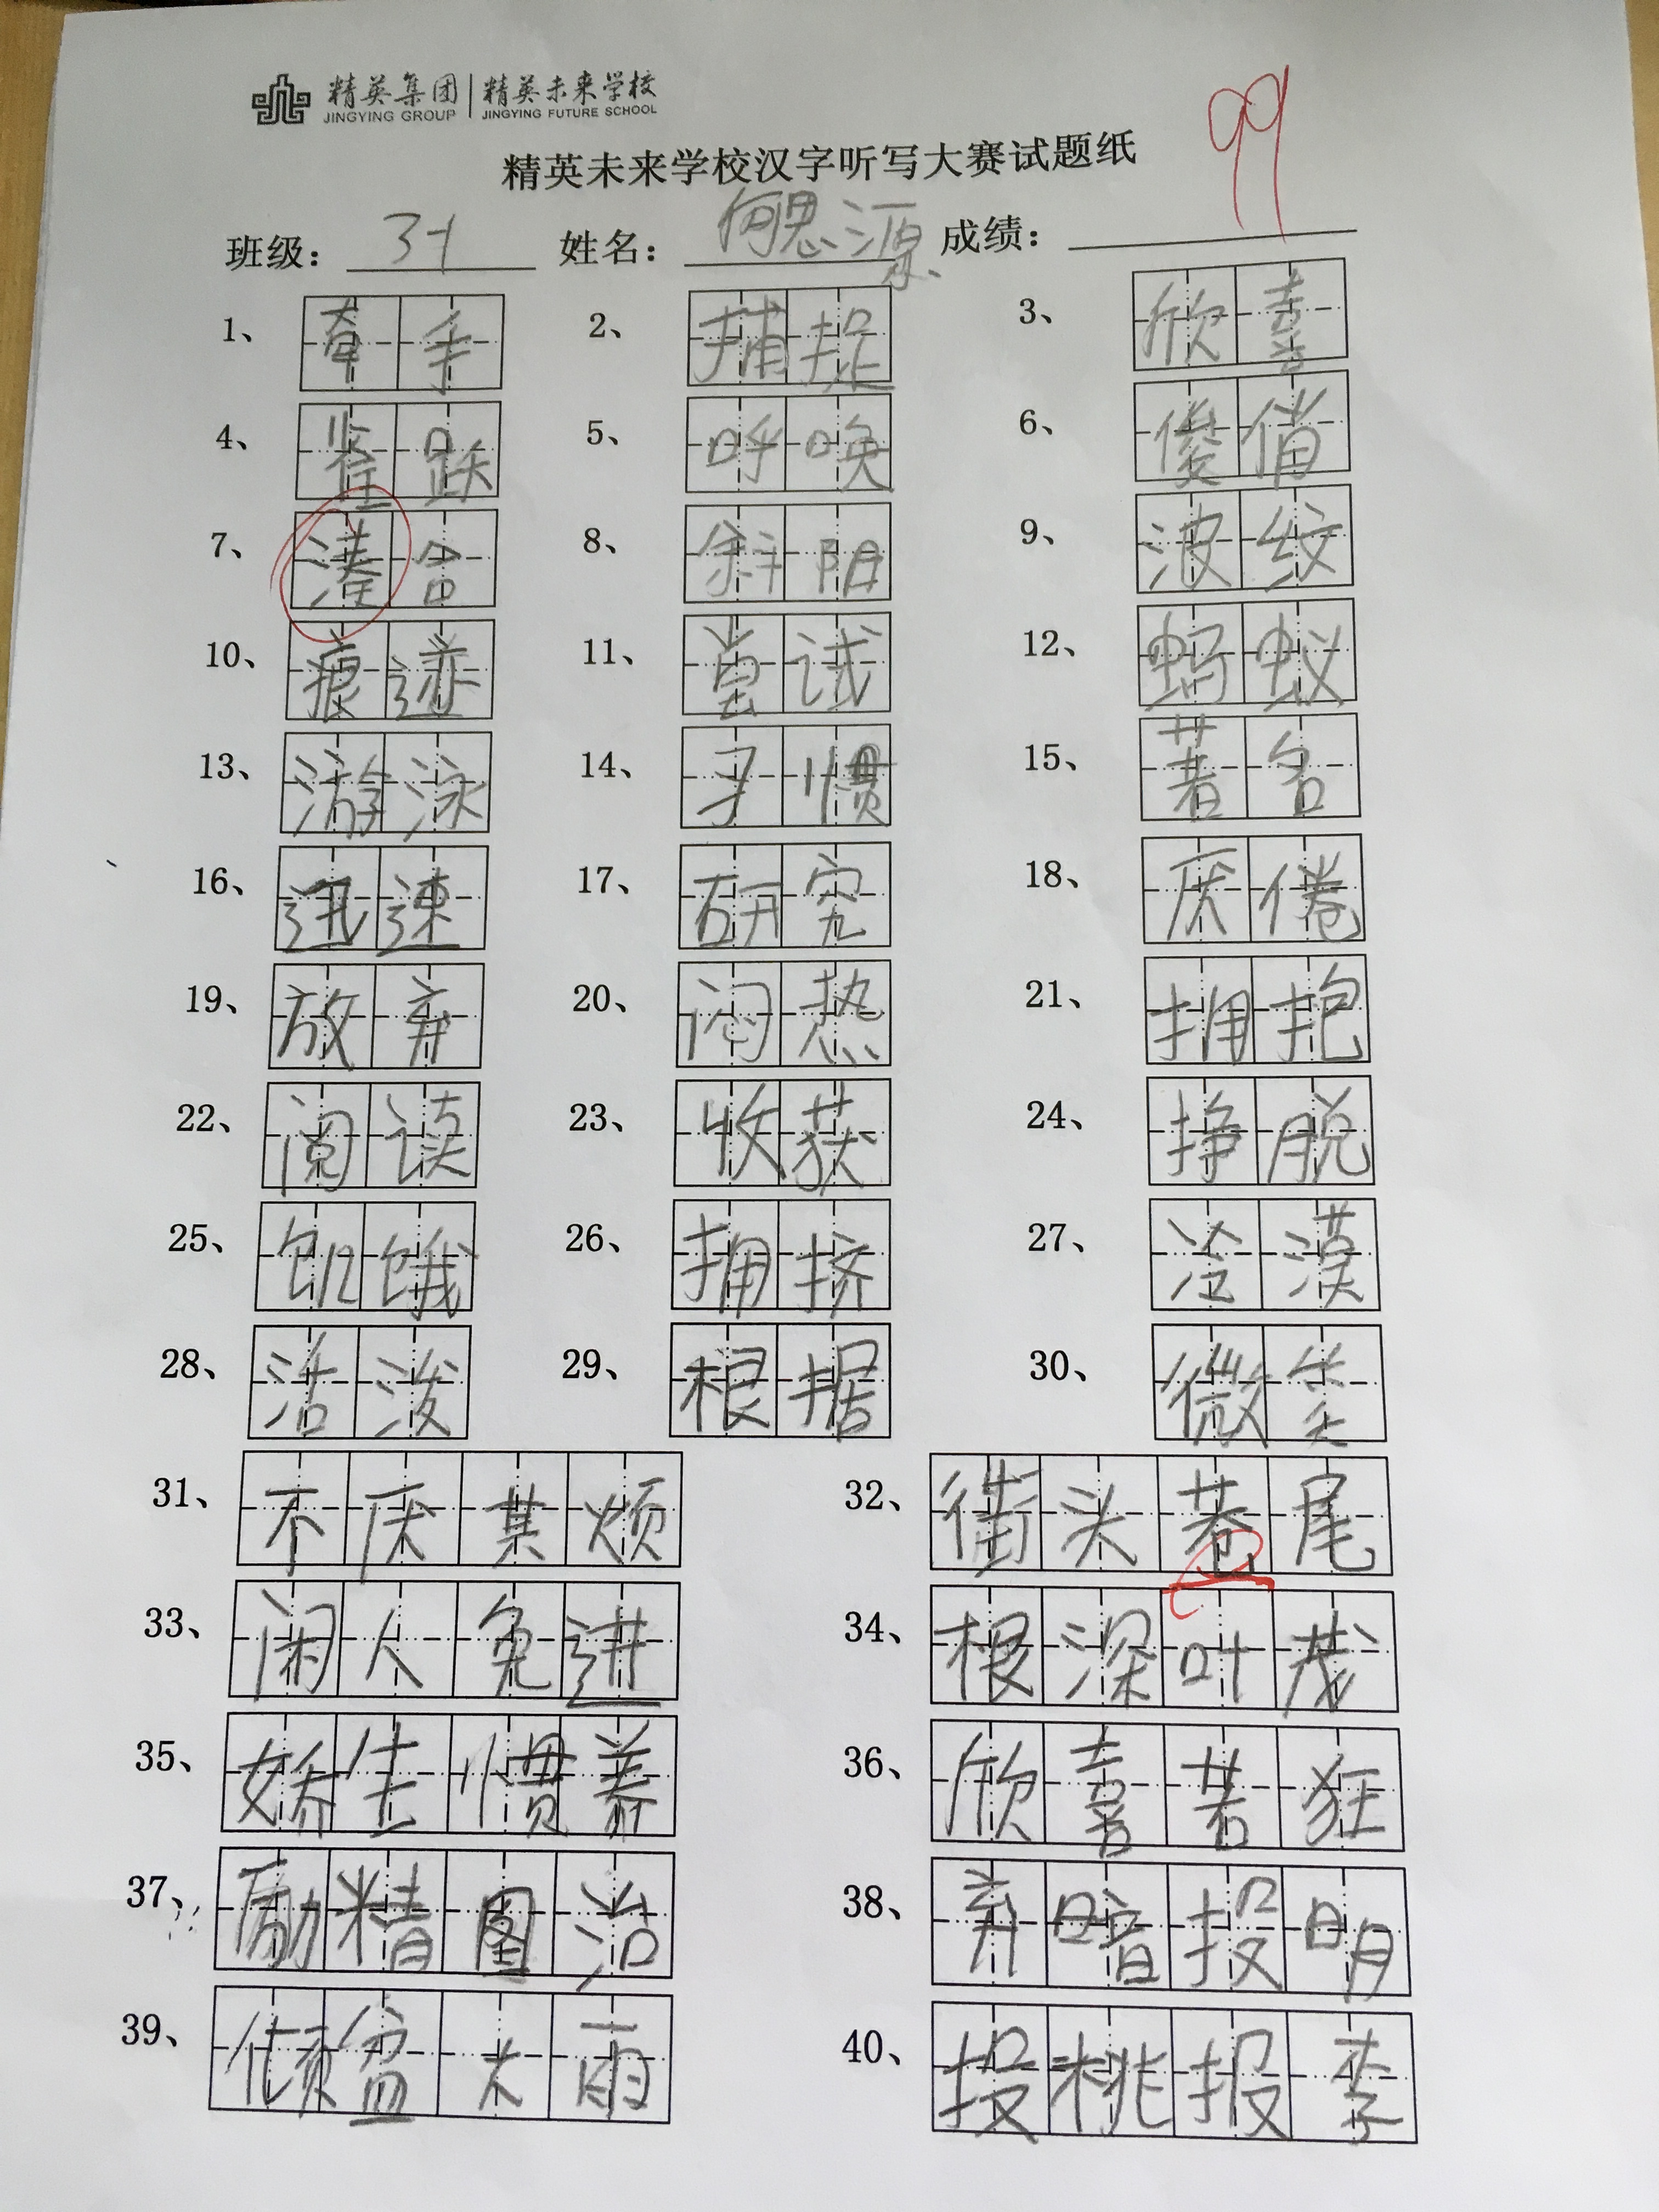 精英集团 精英未来学校
JINGYING GROUP JINGYING FUTURE SCHOOL
99
精英未来学校汉字听写大赛试题纸
班级： 3-1 姓名： 何思源 成绩：
1、 牵手 2、 捕捉 3、 欣喜
4、 跃 5、 呼唤 6、 俊俏
7、 合 8、 斜阳 9、 波纹
10、 痕迹 11、 尝试 12、 蚂蚁
13、 游泳 14、 习惯 15、 著名
16、 迅速 17、 研究 18、 厌倦
19、 放弃 20、 闷热 21、 拥抱
22、 阅读 23、 收获 24、 挣脱
25、 饥饿 26、 拥挤 27、 冷漠
28、 活泼 29、 根据 30、 微笑
31、 不厌其烦 32、 街头巷尾
33、 闲人免进 34、 根深叶茂
35、 娇生惯养 36、 欣喜若狂
37、 励精图治 38、 弃暗投明
39、 倾盆大雨 40、 投桃报李